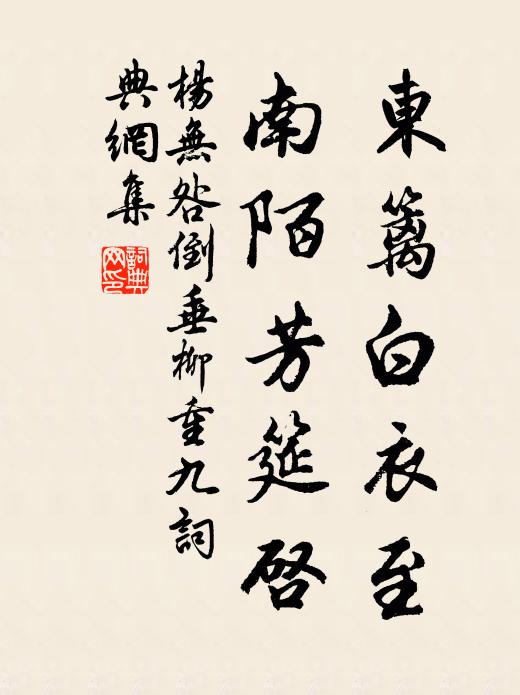 東籬白衣至
南陌芳筵啓
楊無咎倒垂柳重九詞
典網集
詞典
網印